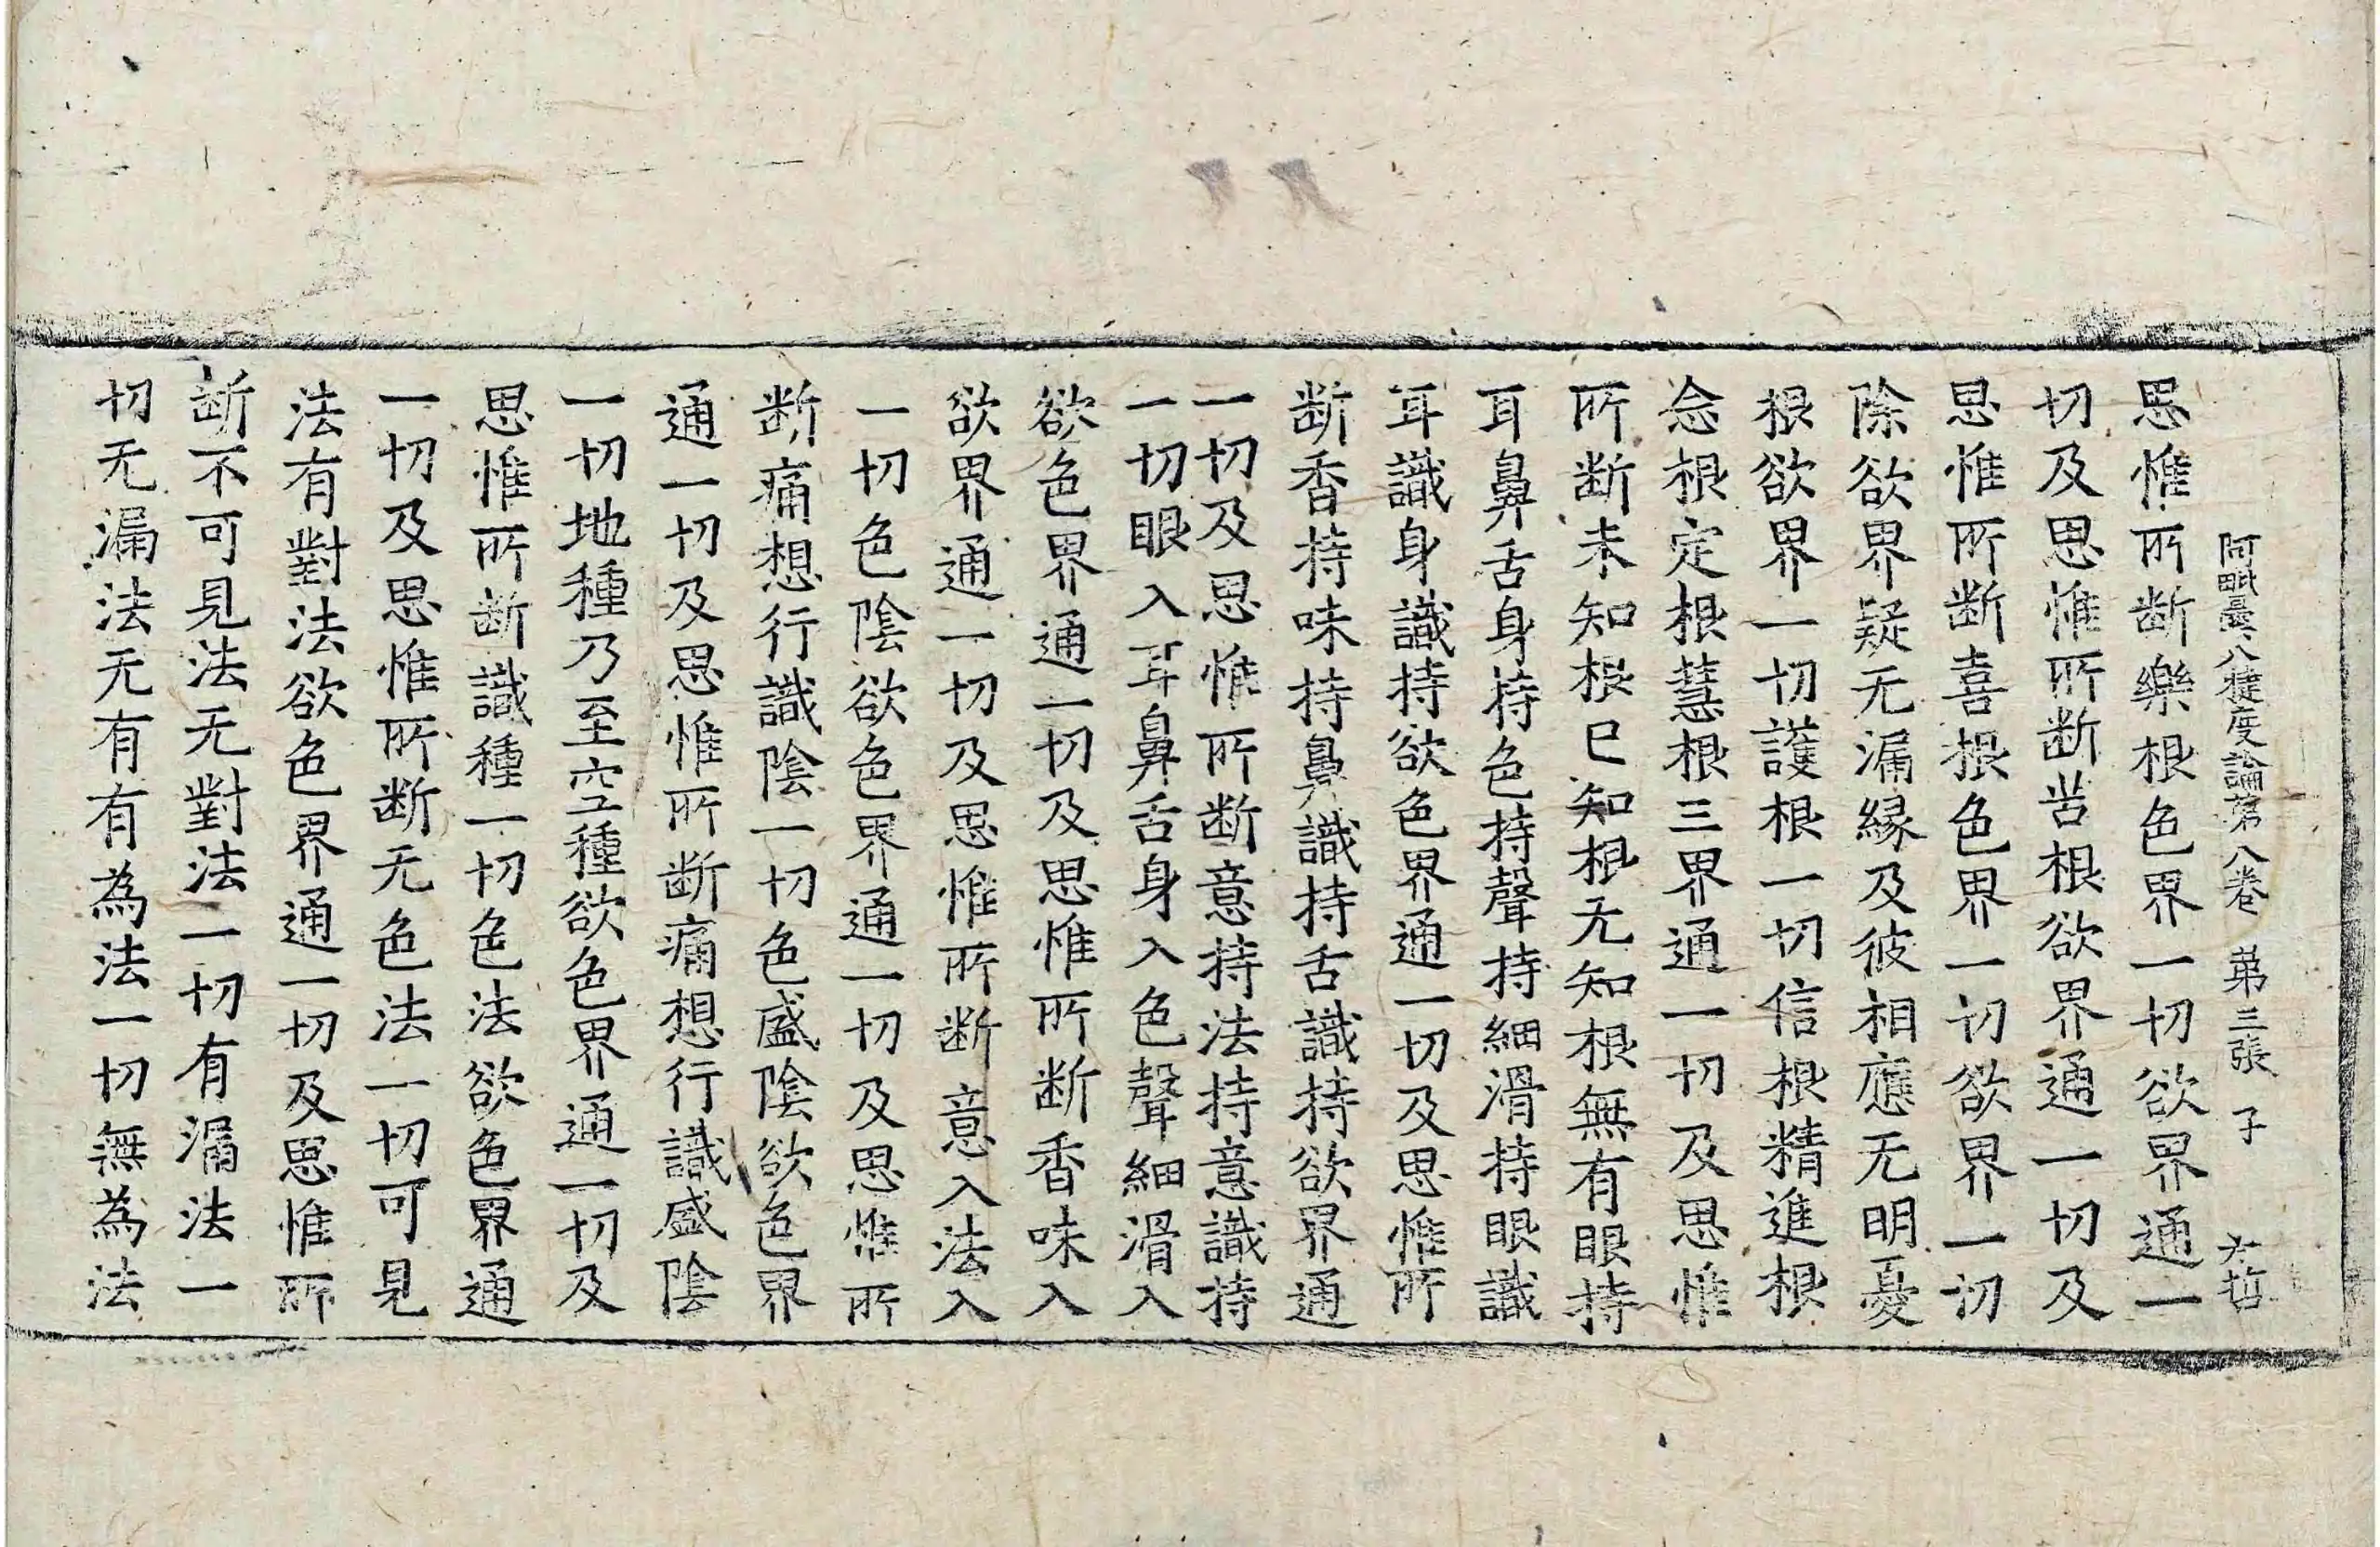 阿毗曇八揵度論第八卷 第三張 子 大哲
思惟所断樂根色界一切欲界通一
切及思惟所断苦根欲界通一切及
思惟所断喜根色界一切欲界一切
除欲界疑无漏縁及彼相應无明憂
根欲界一切護根一切信根精進根
念根定根慧根三界通一切及思惟
所断未知根已知根无知根無有眼持
耳鼻舌身持色持聲持細滑持眼識
耳識身識持欲色界通一切及思惟所
断香持味持鼻識持舌識持欲界通
一切及思惟所断意持法持意識持
一切眼入耳鼻舌身入色聲細滑入
欲色界通一切及思惟所断香味入
欲界通一切及思惟所断意入法入
一切色陰欲色界通一切及思惟所
断痛想行識陰一切色盛陰欲色界
通一切及思惟所断痛想行識盛陰
一切地種乃至空種欲色界通一切及
思惟所断識種一切色法欲色界通
一切及思惟所断无色法一切可見
法有對法欲色界通一切及思惟所
断不可見法无對法一切有漏法一
切无漏法无有有為法一切無為法